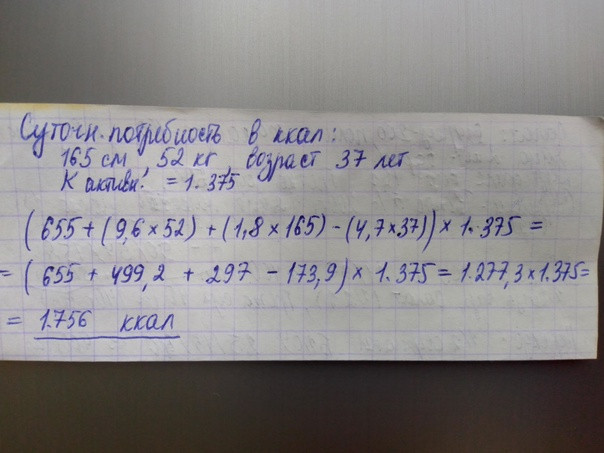 Суточн. потребность в ккал:
165 см, 52 кг, возраст 37 лет
К активн. = 1.375
(655 + (9,6 × 52) + (1,8 × 165) - (4,7 × 37)) × 1.375 =
= (655 + 499,2 + 297 - 173,9) × 1.375 = 1.277,3 × 1.375 =
= 1.756 ккал